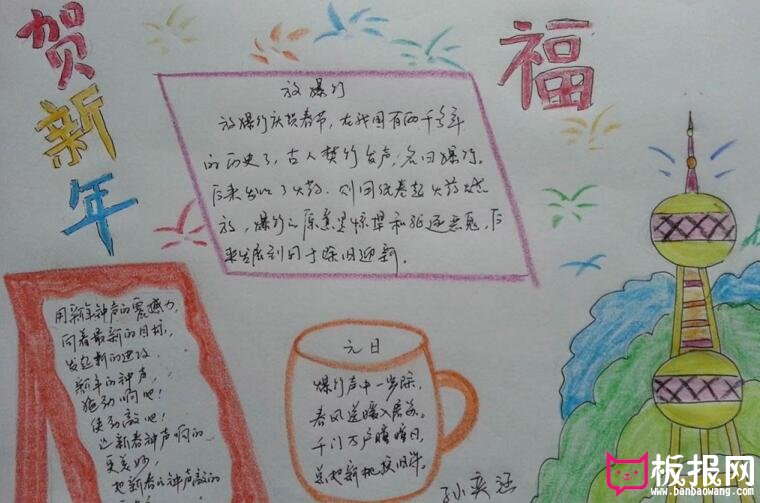 贺新年
福
放爆竹
放爆竹庆贺春节,在我国有两千多年
的历史了,古人焚竹发声,名曰爆竹。
后来发明了火药,则用纸卷起火药燃
放,爆竹之原意是惊惮和驱逐恶鬼,后
来发展到用于除旧迎新。
用新年钟声的震撼力,
向着最新的目标,
发起新的进攻
新年的钟声,
敲动啊吧!
使劲敲吧!
让新春钟声响的
更美妙,
把新春的钟声敲的
元日
爆竹声中一步除,
春风送暖入屠苏。
千门万户曈曈日,
总把新桃换旧符。
板报网
www.banbaowang.com